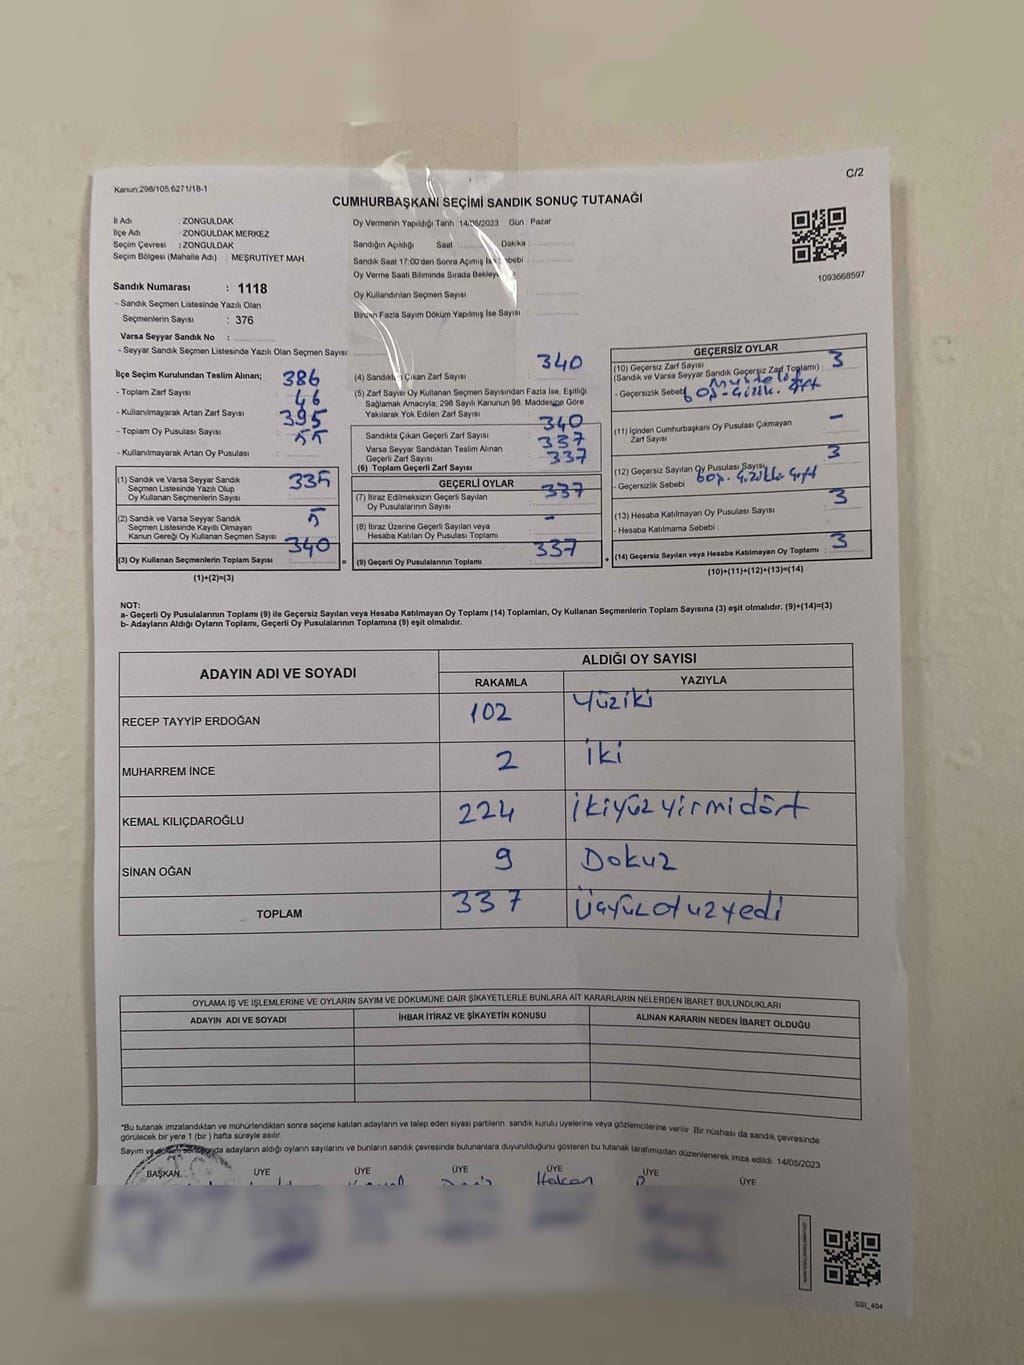 Kanun;298/105,6271/18-1
C/2
CUMHURBAŞKANI SEÇİMİ SANDIK SONUÇ TUTANAĞI
İl Adı : ZONGULDAK
İlçe Adı : ZONGULDAK MERKEZ
Seçim Çevresi : ZONGULDAK
Seçim Bölgesi (Mahalle Adı) : MEŞRUTİYET MAH.
Sandık Numarası : 1118
- Sandık Seçmen Listesinde Yazılı Olan
Seçmenlerin Sayısı : 376
Varsa Seyyar Sandık No :
- Seyyar Sandık Seçmen Listesinde Yazılı Olan Seçmen Sayısı
Oy Vermenin Yapıldığı Tarih 14/05/2023 Gün Pazar
Sandığın Açıldığı Saat Dakika
Sandık Saat 17:00'den Sonra Açılmış İse Sebebi
Oy Verme Saati Bitiminde Sırada
Oy Kullandırılan Seçmen Sayısı
Birden Fazla Sayım Döküm Yapılmış İse Sayısı
1093668597
İlçe Seçim Kurulundan Teslim Alınan; 386
- Toplam Zarf Sayısı 46
- Kullanılmayarak Artan Zarf Sayısı 395
- Toplam Oy Pusulası Sayısı 55
- Kullanılmayarak Artan Oy Pusulası
(1) Sandık ve Varsa Seyyar Sandık 335
Seçmen Listesinde Yazılı Olup
Oy Kullanan Seçmenlerin Sayısı
(2) Sandık ve Varsa Seyyar Sandık 5
Seçmen Listesinde Kayıtlı Olmayan
Kanun Gereği Oy Kullanan Seçmen Sayısı
(3) Oy Kullanan Seçmenlerin Toplam Sayısı 340
(1)+(2)=(3)
(4) Sandıktan Çıkan Zarf Sayısı 340
(5) Zarf Sayısı Oy Kullanan Seçmen Sayısından Fazla İse, Eşitliği
Sağlamak Amacıyla, 298 Sayılı Kanunun 98. Maddesine Göre
Yakılarak Yok Edilen Zarf Sayısı
Sandıkta Çıkan Geçerli Zarf Sayısı 340
Varsa Seyyar Sandıktan Teslim Alınan 337
Geçerli Zarf Sayısı
(6) Toplam Geçerli Zarf Sayısı 337
GEÇERLİ OYLAR
(7) İtiraz Edilmeksizin Geçerli Sayılan 337
Oy Pusulalarının Sayısı
(8) İtiraz Üzerine Geçerli Sayılan veya -
Hesaba Katılan Oy Pusulası Toplamı
(9) Geçerli Oy Pusulalarının Toplamı 337
GEÇERSİZ OYLAR
(10) Geçersiz Zarf Sayısı 3
(Sandık ve Varsa Seyyar Sandık Geçersiz Zarf Toplamı)
- Geçersizlik Sebebi
(11) İçinden Cumhurbaşkanı Oy Pusulası Çıkmayan -
Zarf Sayısı
(12) Geçersiz Sayılan Oy Pusulası Sayısı 3
- Geçersizlik Sebebi
(13) Hesaba Katılmayan Oy Pusulası Sayısı 3
- Hesaba Katılmama Sebebi
(14) Geçersiz Sayılan veya Hesaba Katılmayan Oy Toplamı 3
(10)+(11)+(12)+(13)=(14)
NOT:
a- Geçerli Oy Pusulalarının Toplamı (9) ile Geçersiz Sayılan veya Hesaba Katılmayan Oy Toplamı (14) Toplamları, Oy Kullanan Seçmenlerin Toplam Sayısına (3) eşit olmalıdır. (9)+(14)=(3)
b- Adayların Aldığı Oyların Toplamı, Geçerli Oy Pusulalarının Toplamına (9) eşit olmalıdır.
ADAYIN ADI VE SOYADI ALDIĞI OY SAYISI
RAKAMLA YAZIYLA
RECEP TAYYİP ERDOĞAN 102 Yüziki
MUHARREM İNCE 2 iki
KEMAL KILIÇDAROĞLU 224 ikiyüzyirmidört
SİNAN OĞAN 9 Dokuz
TOPLAM 337 Üçyüzotuzyedi
OYLAMA İŞ VE İŞLEMLERİNE VE OYLARIN SAYIM VE DÖKÜMÜNE DAİR ŞİKAYETLERLE BUNLARA AİT KARARLARIN NELERDEN İBARET BULUNDUKLARI
ADAYIN ADI VE SOYADI İHBAR İTİRAZ VE ŞİKAYETİN KONUSU ALINAN KARARIN NEDEN İBARET OLDUĞU
*Bu tutanak imzalandıktan ve mühürlendikten sonra seçime katılan adayların ve talep eden siyasi partilerin sandık kurulu üyelerine veya gözlemcilerine verilir. Bir nüshası da sandık çevresinde
görülecek bir yere 1 (bir) hafta süreyle asılır.
Sayım ve döküm sonucunda adayların aldığı oyların sayılarını ve bunların sandık çevresinde bulunanlara duyurulduğunu gösteren bu tutanak tarafımızdan düzenlenerek imza edildi. 14/05/2023
BAŞKAN ÜYE ÜYE ÜYE ÜYE ÜYE ÜYE
SSI_404